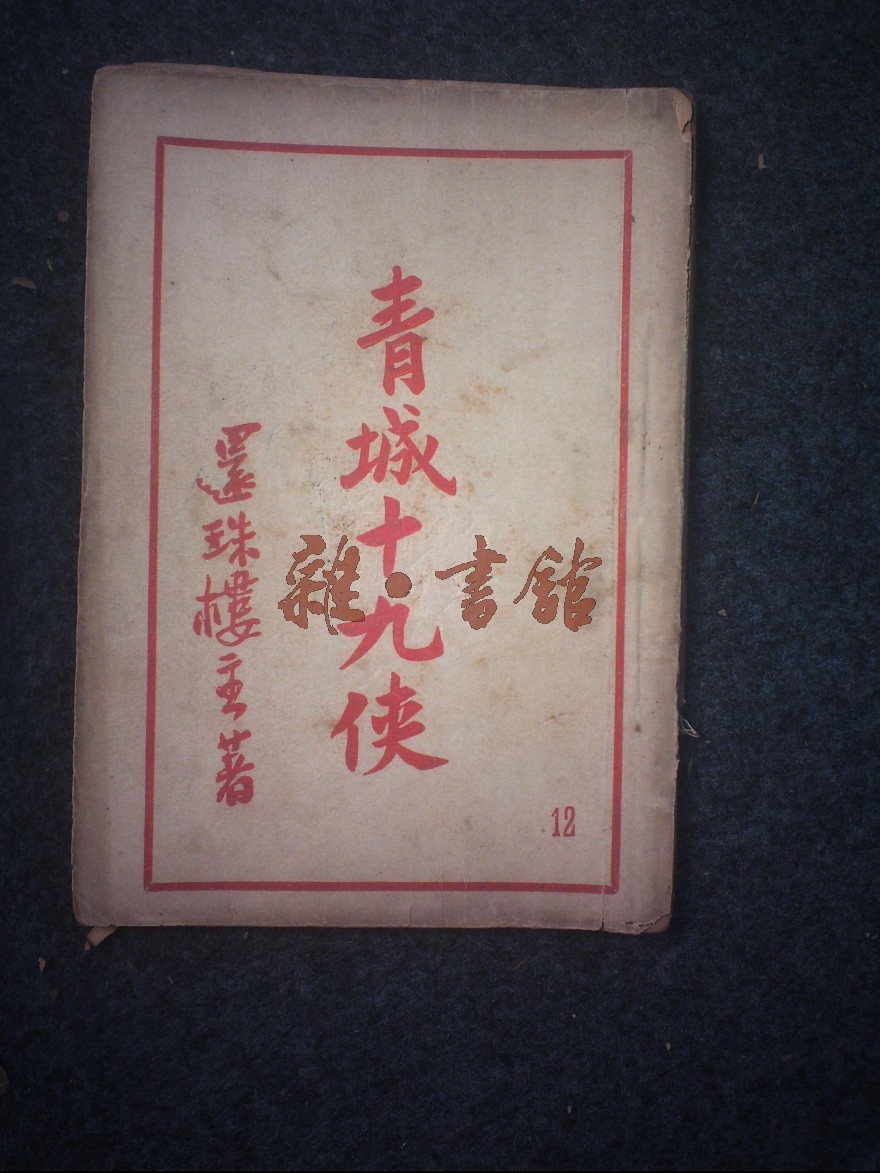 青城十九侠
還珠樓主著
12
雜·書館